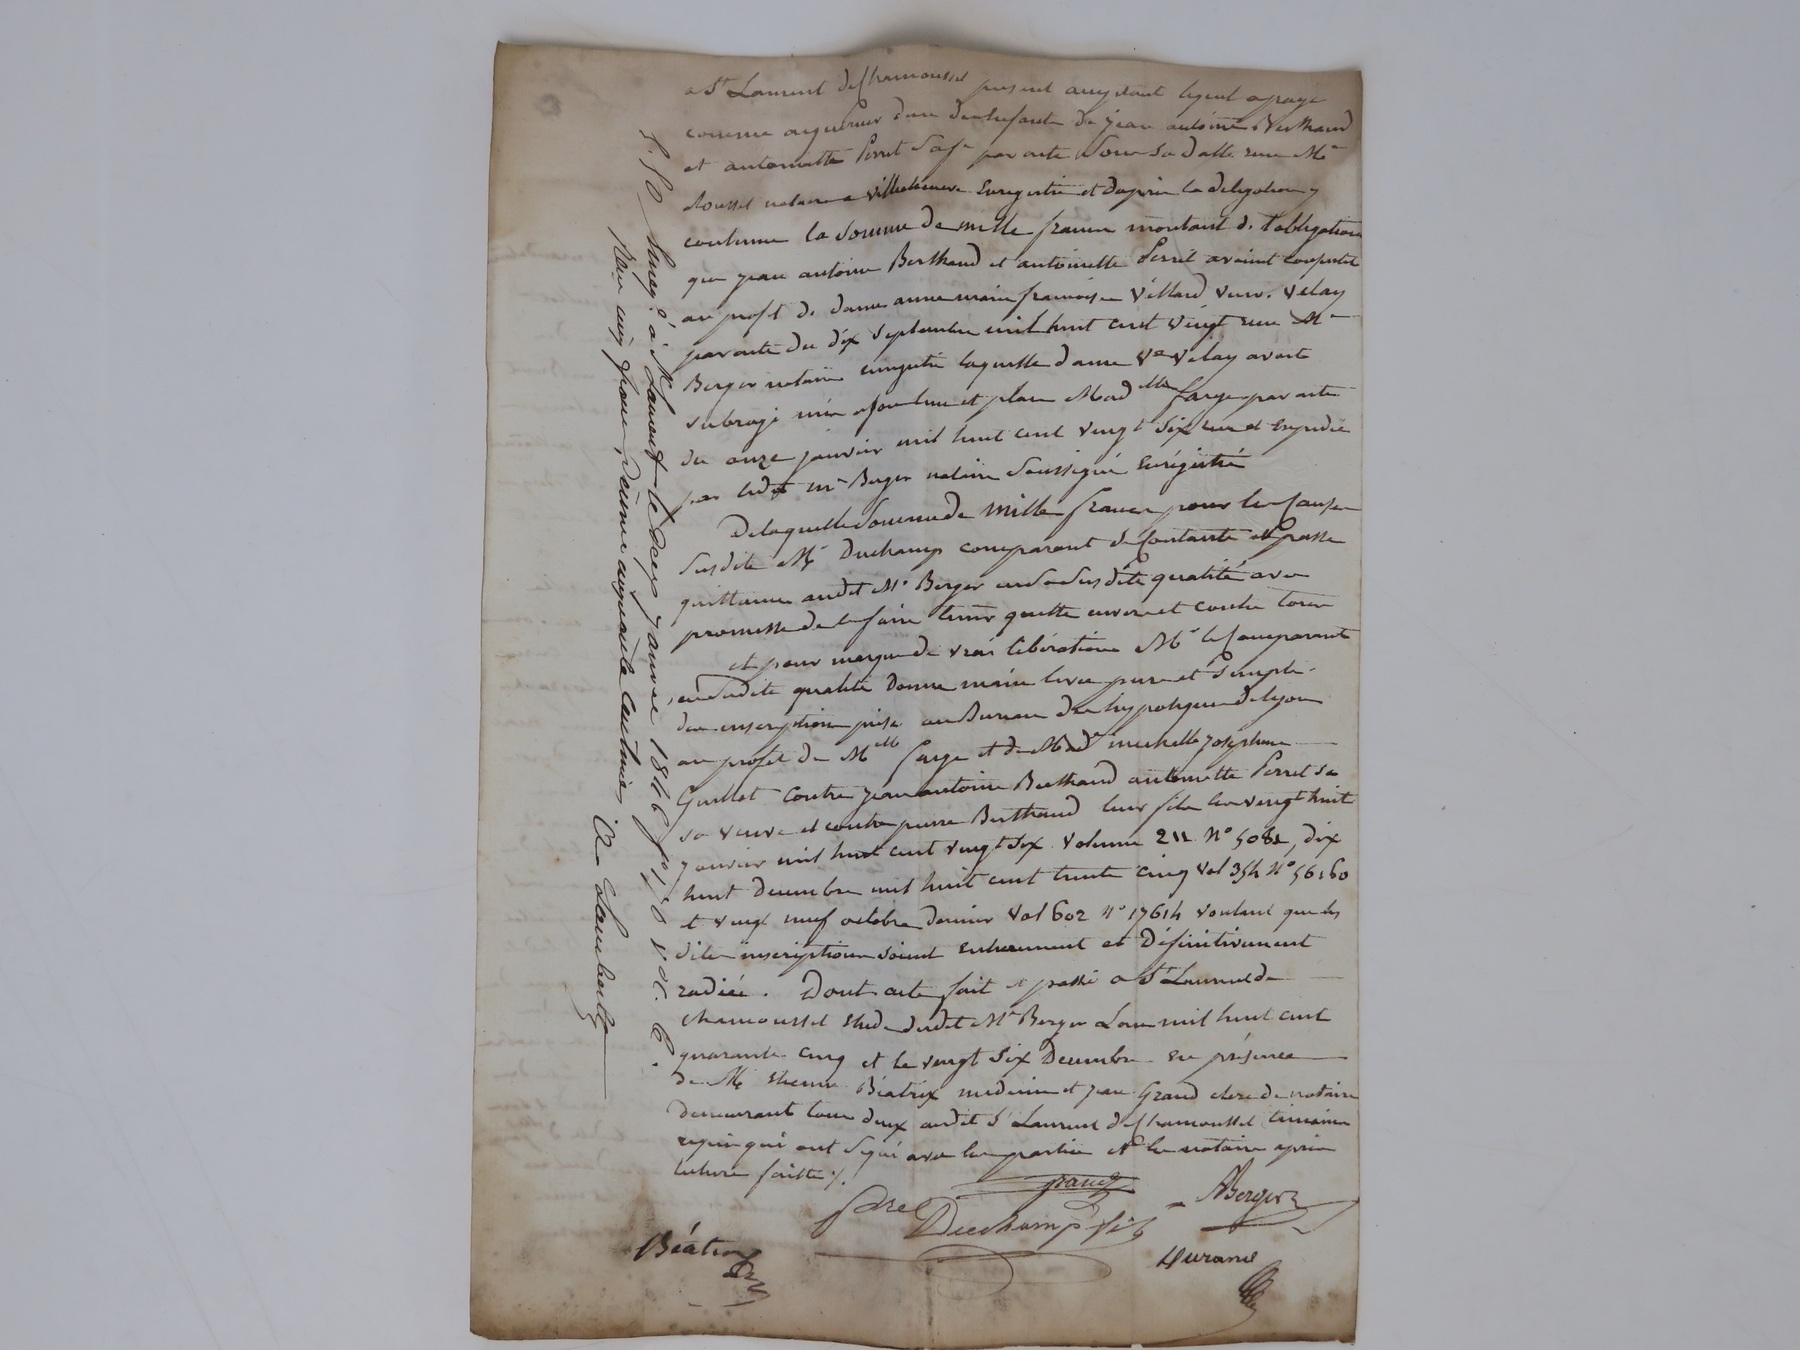 a St Laurent de Chamousset present aussitout lequel a payé
comme acquereur dun de Jean antoine Berthaud
et antoinette Perret Sa fe par acte Sour Sa datte recu Me
Rousset notaire a Villechenève Enregistré et daprès la deligation y
contenue la Somme de mille francs montant de l'obligation
que jean antoine Berthaud et antoinette Perret avaient consentit
au profit de dame anne marie françoise Villard veuve Velay
par acte du dix Septembre mil huit cent vingt recu Me
Berger notaire enregistré laquelle dame Ve Velay avait
subrogé mis a Son lieu et place Madelle Farge par acte
du onze janvier mil huit cent vingt Six recu et expedié
par ledit me Berger notaire Soussigné Enrégistré
De laquelle Somme de Mille francs pour les causes
Susdites Mr Duchamp comparant se contante et passe
quittance audit Mr Berger en Sa Susdite qualité avec
promesse de le faire tenir quitte envers et contre tous
et pour marque de vrai libération Mr le Comparant
en Sadite qualité donne main levée pure et Simple
des inscriptions prise au Bureau des hypotheques de lyon
au profit de Melle Farge et de Made michelle josephine
Guillot contre jean antoine Berthaud antoinette Perret sa
sa veuve et contre pierre Berthaud leur fils les vingt huit
janvier mil huit cent vingt Six volume 211 No 5081, dix
huit decembre mil huit cent trente cinq vol 354 No 56,60
et vingt neuf octobre dernier vol 602 No 17614 voulant que les
dites inscriptions soient entierement et définitivement
radiées. Dont acte fait et passé a St Laurent de
chamousset Etude dudit Mr Berger Lan mil huit cent
quarante cinq et le vingt Six Decembre en présence
de Mrs Etienne Béatrix médecin et jean Grand clerc de notaire
demeurant tous deux audit St Laurent de Chamousset témoins
requis qui ont Signé avec les parties et le notaire après
lecture faitte ./.
grand
ABerger
Duchamp fils
Béatrix
Durand
Enreg. à St Laurent le deux janvier 1846
Reçu cinq francs, décime cinquante centimes